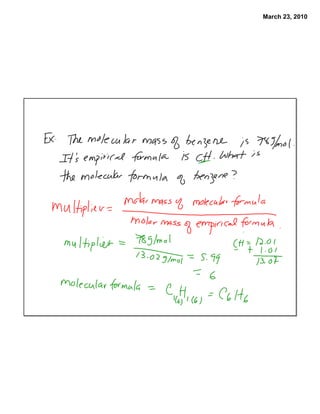 March 23, 2010
Ex. The molecular mass of benzene is 78g/mol.
It's empirical formula is CH. What is
the molecular formula of benzene?
multiplier = molar mass of molecular formula
molar mass of empirical formula.
multiplier = 78g/mol
13.02g/mol = 5.99
= 6
CH = 12.01
+ 1.01
13.02
molecular formula = C1(6)H1(6) = C6H6